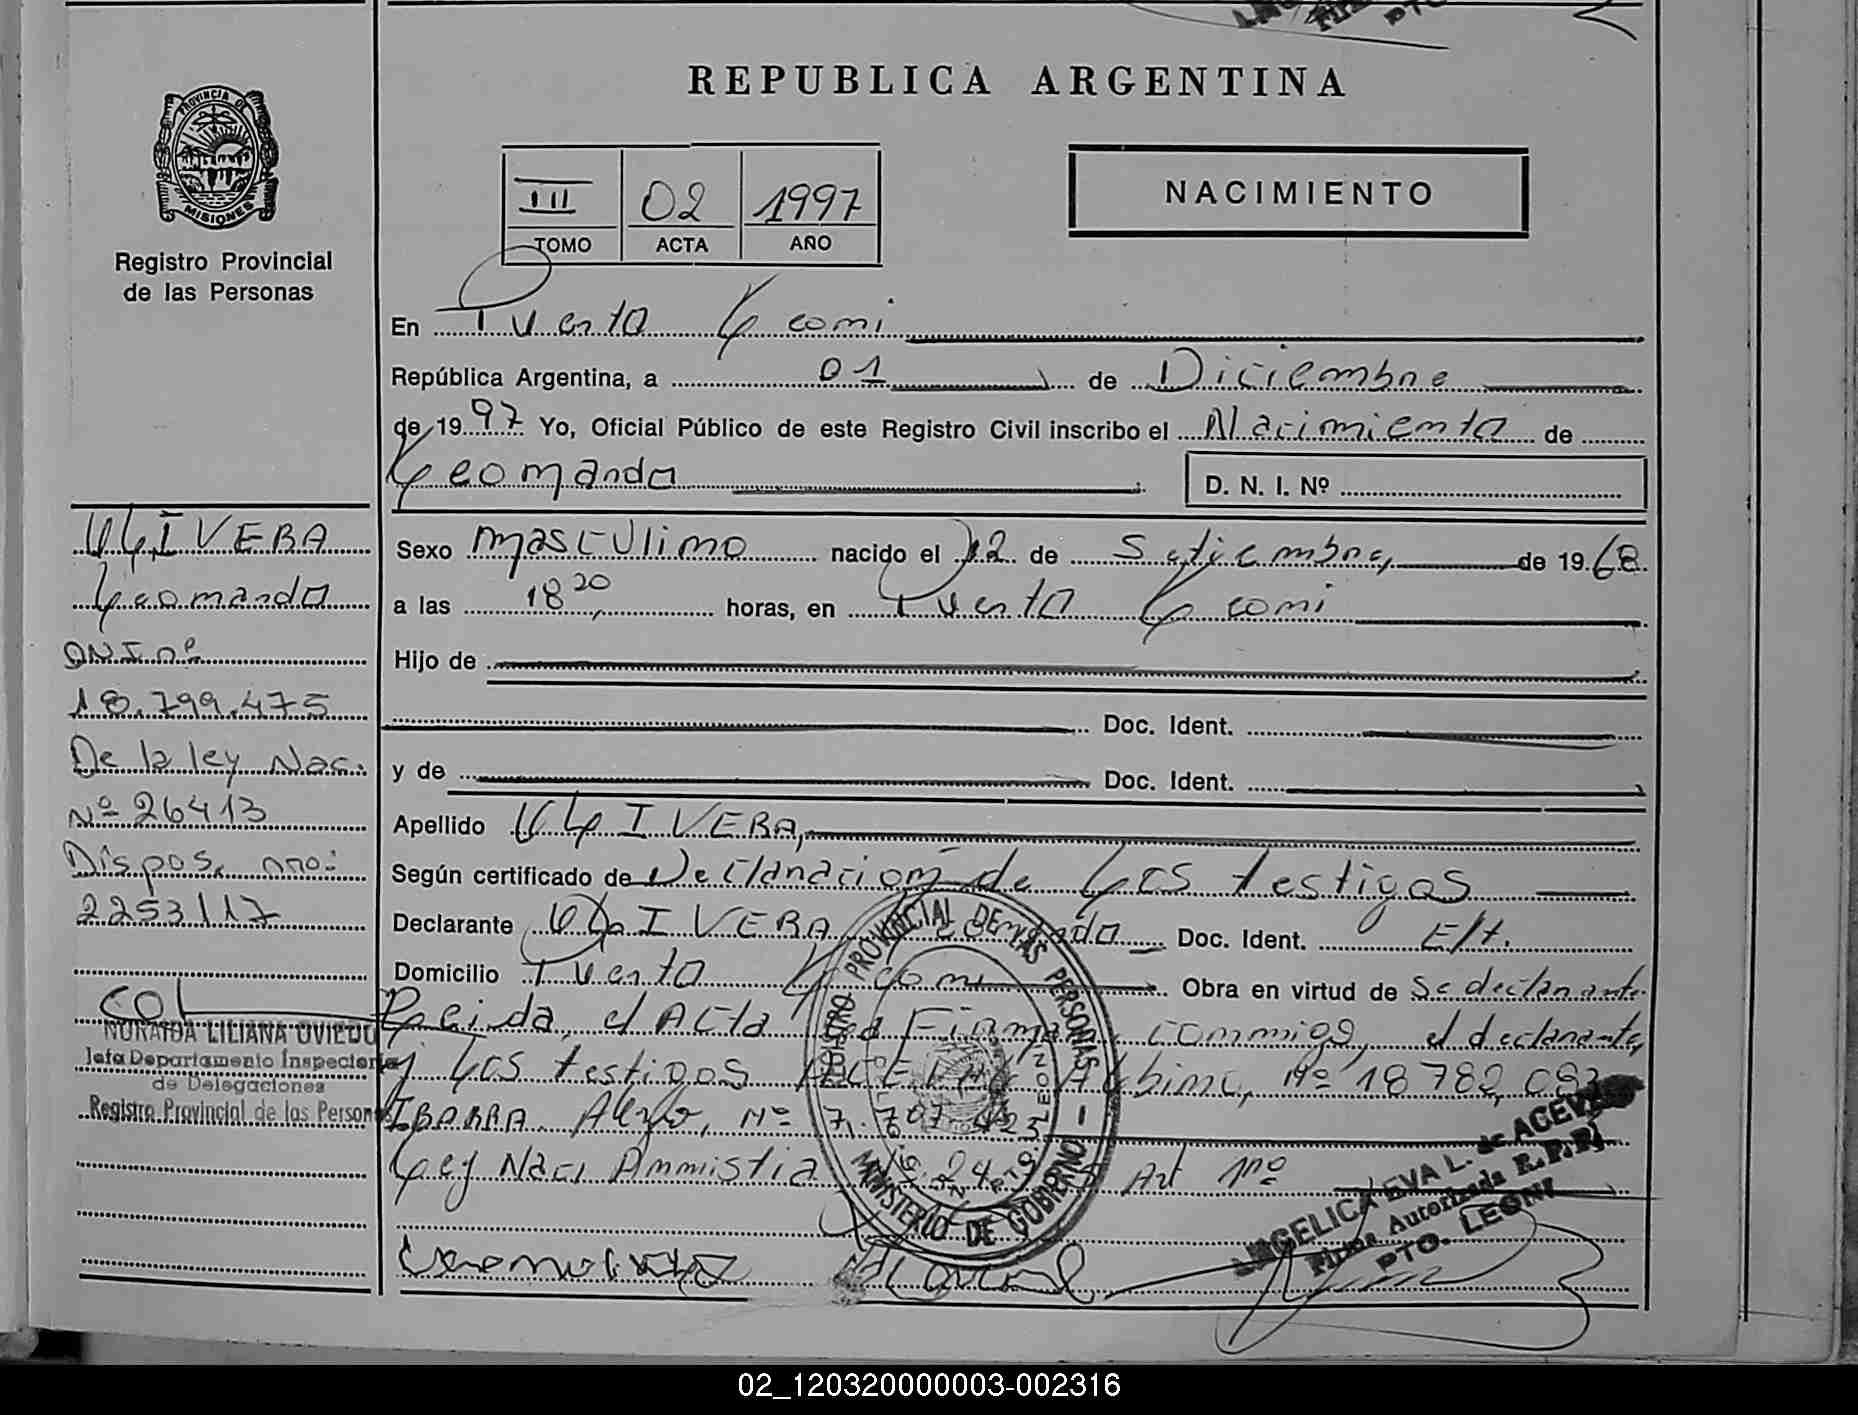 REPUBLICA ARGENTINA
PROVINCIA DE MISIONES
Registro Provincial
de las Personas
III 02 1997
TOMO ACTA AÑO
NACIMIENTO
En Puerto Leoni
República Argentina, a 01 de Diciembre
de 1997 Yo, Oficial Público de este Registro Civil inscribo el Nacimiento de
Leonardo
D. N. I. Nº
Sexo masculino nacido el 12 de Setiembre, de 1968.
a las 18 20, horas, en Puerto Leoni
Hijo de
Doc. Ident.
y de Doc. Ident.
Apellido OLIVERA,
Según certificado de Declaracion de Los testigos
Declarante OLIVERA Doc. Ident. E/t.
Domicilio Puerto Leoni Obra en virtud de Su declarante
Leida, el Acta la Firman conmigo, el declarante,
y Los testigos Albino, Nº 18782,083
IBARRA, Nº 7.707.423
Ley Nac. Ammistia Art 1º
OLIVERA
Leonardo
DNI nº
18.799.475
De la ley Nac.
Nº 26413
Dispos. nro:
2253/17
COL
NORAIDA LILIANA OVIEDO
Jefa Departamento Inspectoria
de Delegaciones
Registro Provincial de las Personas
REGISTRO PROVINCIAL DE LAS PERSONAS
MINISTERIO DE GOBIERNO
PTO. LEONI
ANGELICA EVA L. de ACEVEDO
Firma Autorizada R.P.P.
PTO. LEONI
02_120320000003-002316